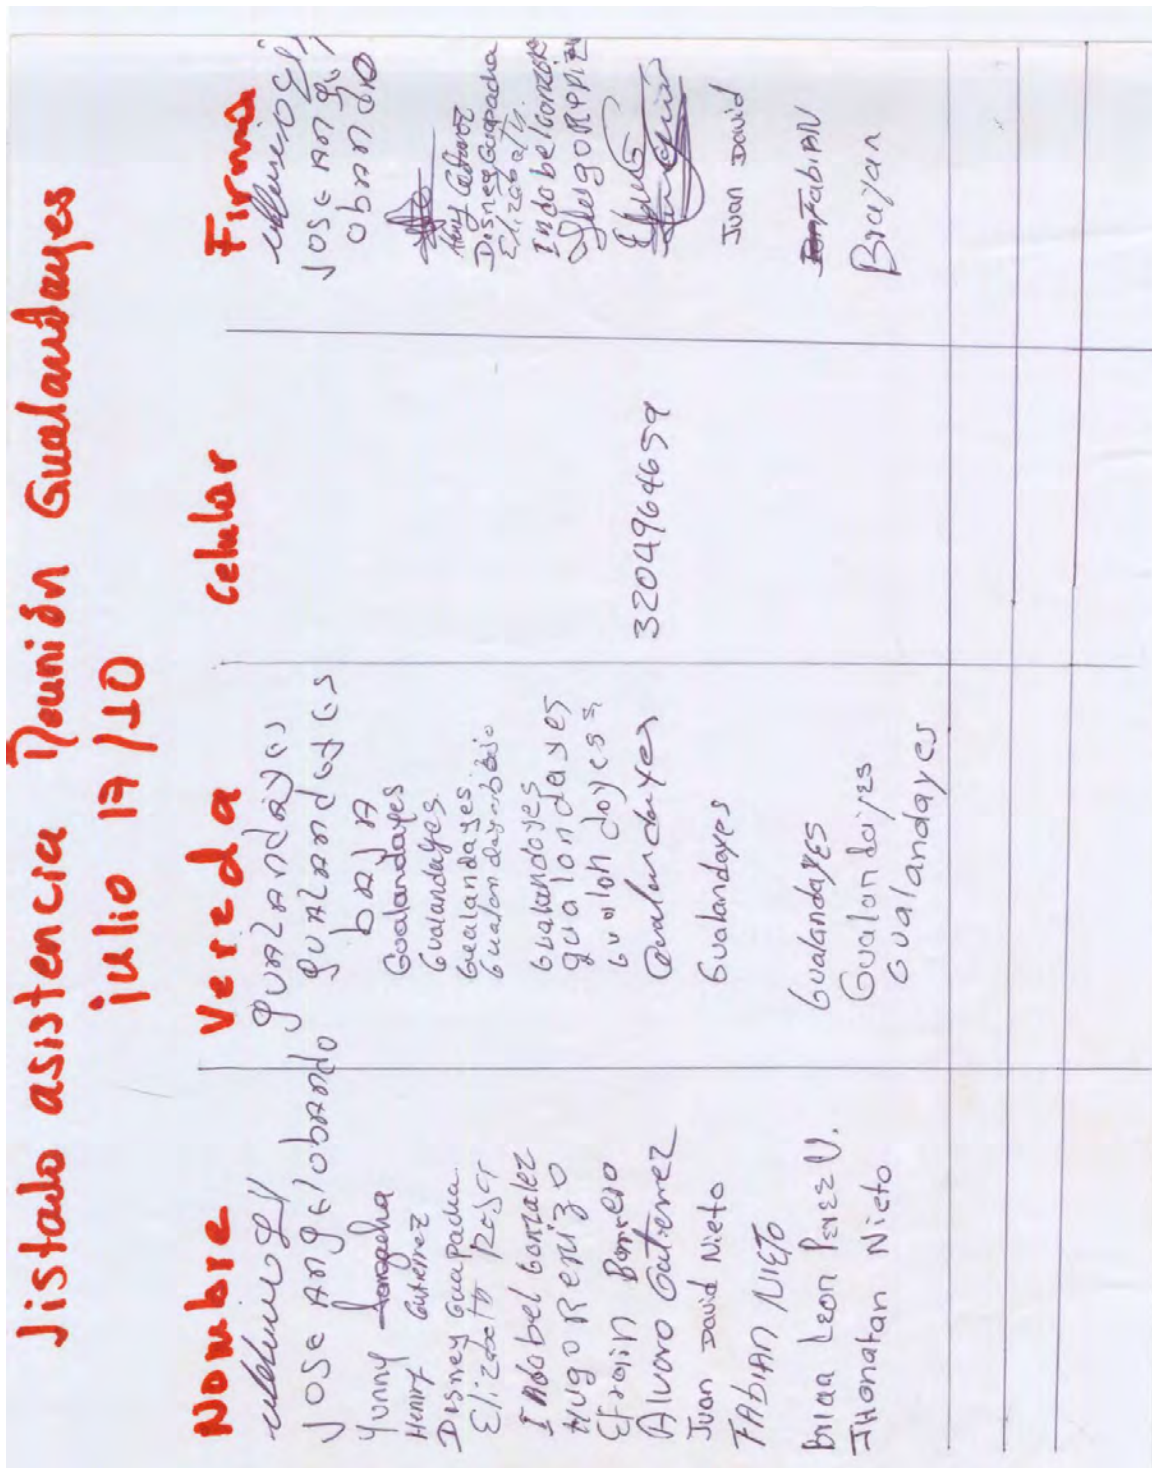 Listado asistencia Reunión Gualandayes
julio 17/10
Nombre Vereda Celular Firma
gualandayes
Jose Angel obando gualandayes baja Jose Angel obando
Yunny Gualandayes
Henry Gutierrez Gualandayes Henry
Disney Guapacha Gualandayes Disney Guapacha
Elizabeth Gualandayes bajo Elizabeth
Indobel Gonzalez Gualandayes Indobel Gonzalez
Hugo Renizo gualondayes Hugo Renizo
Efrain Borrero Gualondoyes
Alvaro Gutierrez Gualandayes 3204964659
Juan David Nieto Gualandayes Juan David
FAbiAN NIETO GualandayES FabiAN
Brian Leon Perez V. Gualandayes Brayan
Jhonatan Nieto Gualandayes